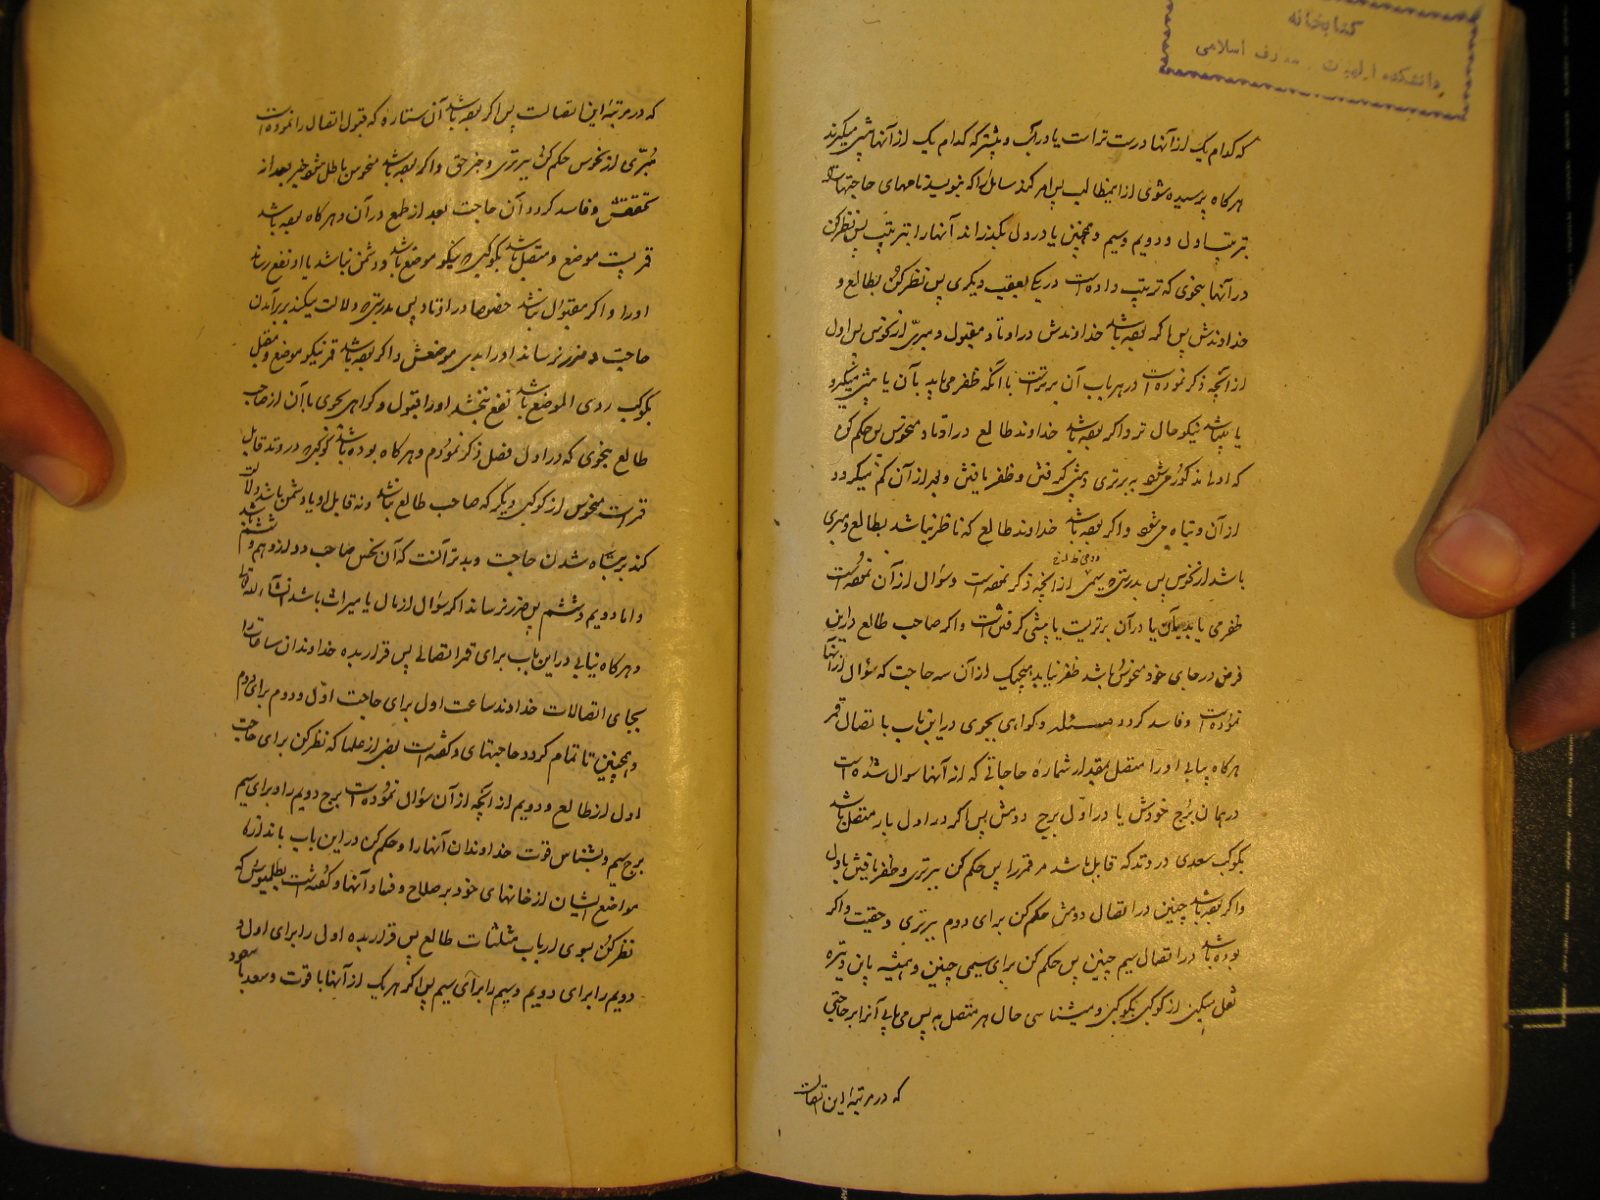 کتابخانه
دانشکده الهیات و معارف اسلامی
که کدام یک از آنها درست تر است یا در آب و بیشتر که کدام یک از آنها پیش میگیرند
هرکاه پرسیده شوی از اینمطالب پس امر کن سایل را که بنویسد نامهای حاجتها
بترتیب اول و دویم و سیم و همچنین یا در دل بگذراند آنها را بترتیب پس نظر کن
در آنها بنحوی که ترتیب داده است در یکی بعقب دیگری پس نظر کن بطالع و
خداوندش پس اگر بوده باشد خداوندش در اوتاد مقبول و مبری از نحوس پس اول
از آنچه ذکر نموده است در هر باب آن برتر است با آنکه ظفر می یابد بآن یا پیش میگیرد
یا میباشد نیکو حال تر و اکر بوده باشد خداوند طالع در اوتاد منحوس پس حکم کن
که اول مذکور می شود به برتری و پیش گرفتن و ظفر یافتن و بعد از آن کم میگردد
از آن و تباه می شود و اکر بوده باشد خداوند طالع که ناظر نباشد بطالع و مبری
باشد از نحوس پس بدرستی که سیم از آنچه ذکر نموده است و سؤال از آن نموده است
ظفر می یابد بآن یا در آن برتریست یا پیش گرفتن است و اکر صاحب طالع در این
فرض در جای خود منحوس باشد ظفر نیابد بهیچیک از آن سه حاجت که سؤال از آنها
نموده است و فاسد کردد مسئله و کواهی بجوی در این باب با تصال قمر
هرکاه بیابی او را متصل بمقدار شماره حاجاتی که از آنها سوال شده است
در همان برج خودش یا در اول برج دومش پس اکر در اول بار متصل باشد
بکوکب سعدی در وتد که قابل باشد مر قمر را پس حکم کن ببرتری و ظفر یافتن باول
و اکر بوده باشد چنین در اتصال دومش حکم کن برای دوم ببرتری و حقیت و اکر
بوده باشد در اتصال سیم چنین پس حکم کن برای سیمی چنین و همیشه باین وتیره
نقل میکن از کوکبی بکوکبی و میشناسی حال هر متصل به پس می یابی آنرا بر حاجتی
که در مرتبه این اتصالست
که در مرتبه این اتصالست پس اکر بوده باشد آن ستاره که قبول اتصال را نموده است
مبری از نحوس حکم کن ببرتری و جز حق و اکر بوده باشد منحوس باطل شود خبر بعد از
تحققش و فاسد کردد آن حاجت بعد از طمع در آن و هرکاه بوده باشد
قمر پست موضع و متصل باشد بکوکبی که نیکو موضع باشد و دشمن نباشد یا او نفع رساند
او را و اکر مقبول نباشد خصوصا در اوتاد پس بدرستی که دلالت میکند بر برآمدن
حاجت و ضرر نرساند او را بدی موضعش و اکر بوده باشد قمر نیکو موضع و متصل
بکوکب ردی الموضع باشد نفع نبخشد او را قبول و کواهی بجوی بآن از صاحب
طالع بنحوی که در اول فصل ذکر نمودم و هرکاه بوده باشد کوکبی که در وتد قابل
قمر است منحوس از کوکبی دیگر که صاحب طالع نباشد و نه قابل او یا دشمن باشد دلالت
کند بر تباه شدن حاجت و بدتر آنست که آن نحس صاحب دوازدهم و ششم باشد
و اما دویم و هشتم پس ضرر نرساند اکر سؤال از مال یا میراث باشد انشاء الله تعالی
و هرکاه نیابی در این باب برای قمر اتصالی پس قرار بده خداوندان ساعات را
بجای اتصالات خداوند ساعت اول برای حاجت اول و دوم برای دوم
و همچنین تا تمام کردد حاجتهای و کفته است بعض از علما که نظر کن برای حاجت
اول از طالع و دویم از آنچه از آن سؤال نموده است برج دویم را و برای سیم
برج سیم و بشناس قوت خداوندان آنها را و حکم کن در این باب باندازه
مواضع ایشان از خانهای خود بر صلاح و فساد آنها و کفته است بطلمیوس که
نظر کن بسوی ارباب مثلثات طالع پس قرار بده اول را برای اول و
دویم را برای دویم و سیم را برای سیم پس اکر هر یک از آنها با قوت و سعد یا مسعود